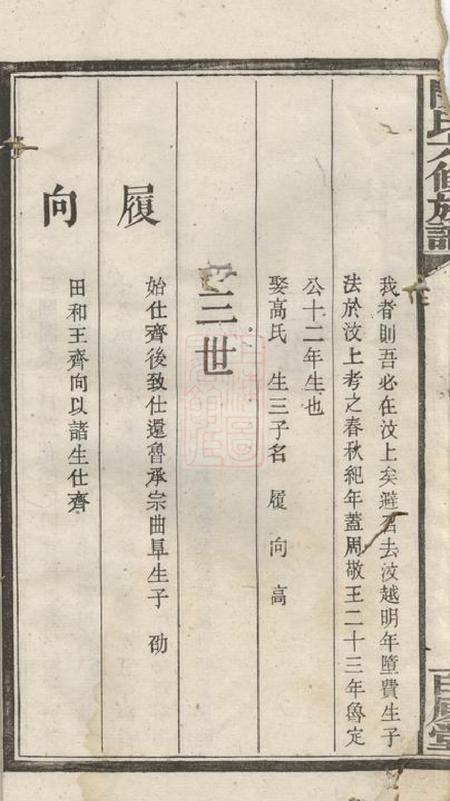 閔氏六修族譜
我者則吾必在汶上矣避召去汶越明年墮費生子
法於汶上考之春秋紀年蓋周敬王二十三年魯定
公十二年生也
娶高氏 生三子名 履 向 高
三世
履
始仕齊後致仕還魯承宗曲阜生子 劭
向
田和王齊向以諸生仕齊